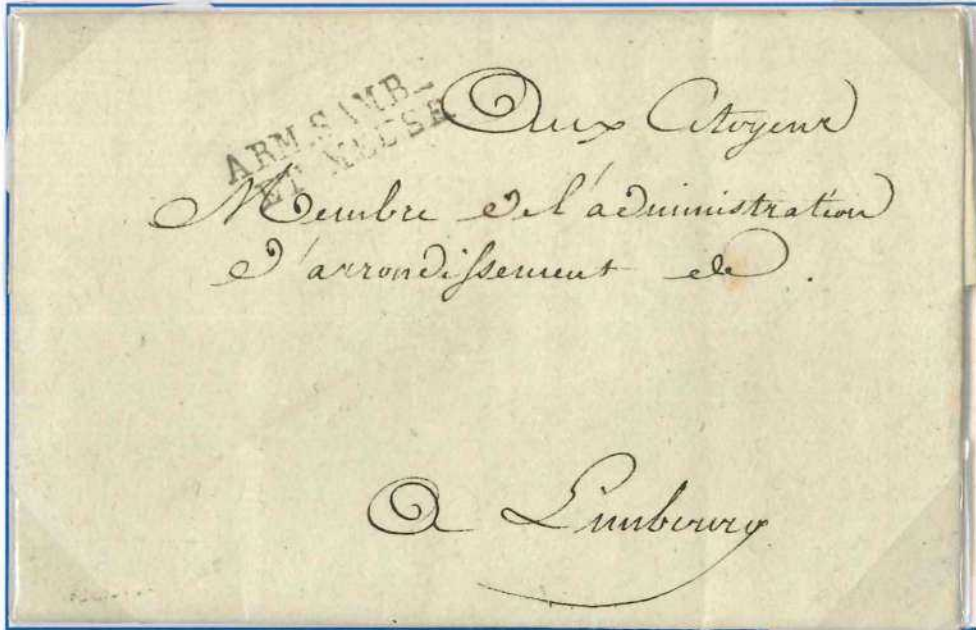 ARM.SAMB_
ET MEUSE
Aux Citoyens
Membre de l'administration
d'arrondissement de .
A Limbourg